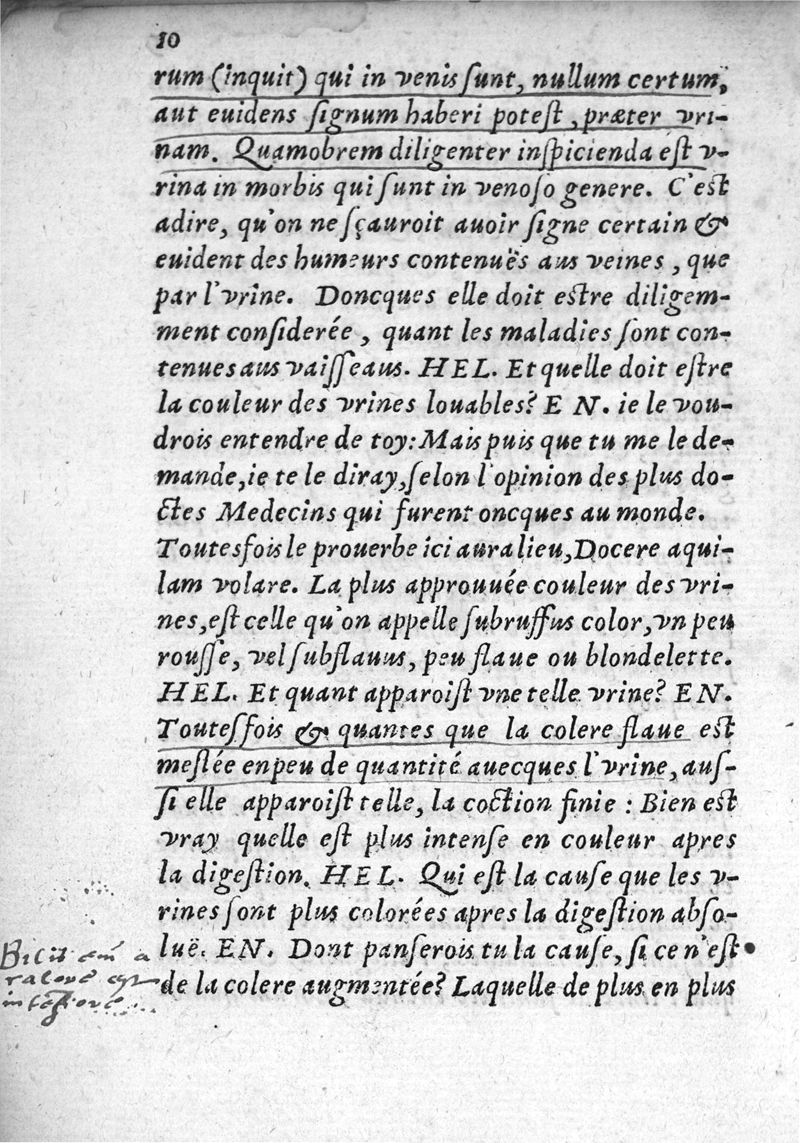 10
rum (inquit) qui in venis ſunt, nullum certum,
aut euidens ſignum haberi poteſt, præter vri-
nam. Quamobrem diligenter inſpicienda eſt v-
rina in morbis qui ſunt in venoſo genere. C'eſt
adire, qu'on ne ſçauroit auoir ſigne certain &
euident des humeurs contenuës aus veines, que
par l'vrine. Doncques elle doit eſtre diligem-
ment conſiderée, quant les maladies ſont con-
tenues aus vaiſſeaus. HEL. Et quelle doit eſtre
la couleur des vrines louables? EN. ie le vou-
drois entendre de toy: Mais puis que tu me le de-
mande, ie te le diray, ſelon l'opinion des plus do-
ctes Medecins qui furent oncques au monde.
Toutesfois le prouerbe ici aura lieu, Docere aqui-
lam volare. La plus approuuée couleur des vri-
nes, eſt celle qu'on appelle ſubruffus color, vn peu
rouſſe, vel ſubflauus, peu flaue ou blondelette.
HEL. Et quant apparoiſt vne telle vrine? EN.
Touteſfois & quantes que la colere flaue eſt
meſlée enpeu de quantité auecques l'vrine, auſ-
ſi elle apparoiſt telle, la coction finie : Bien eſt
vray quelle eſt plus intenſe en couleur apres
la digeſtion. HEL. Qui eſt la cauſe que les v-
rines ſont plus colorées apres la digeſtion abſo-
luë. EN. Dont panſerois tu la cauſe, ſi ce n'eſt
de la colere augmentée? Laquelle de plus en plus